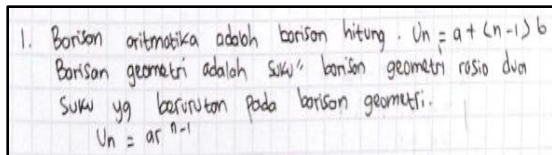 1. Barisan aritmatika adalah barisan hitung. Un = a + (n-1) b
Barisan geometri adalah suku" barisan geometri rasio dua
suku yg berurutan pada barisan geometri.
Un = ar^n-1